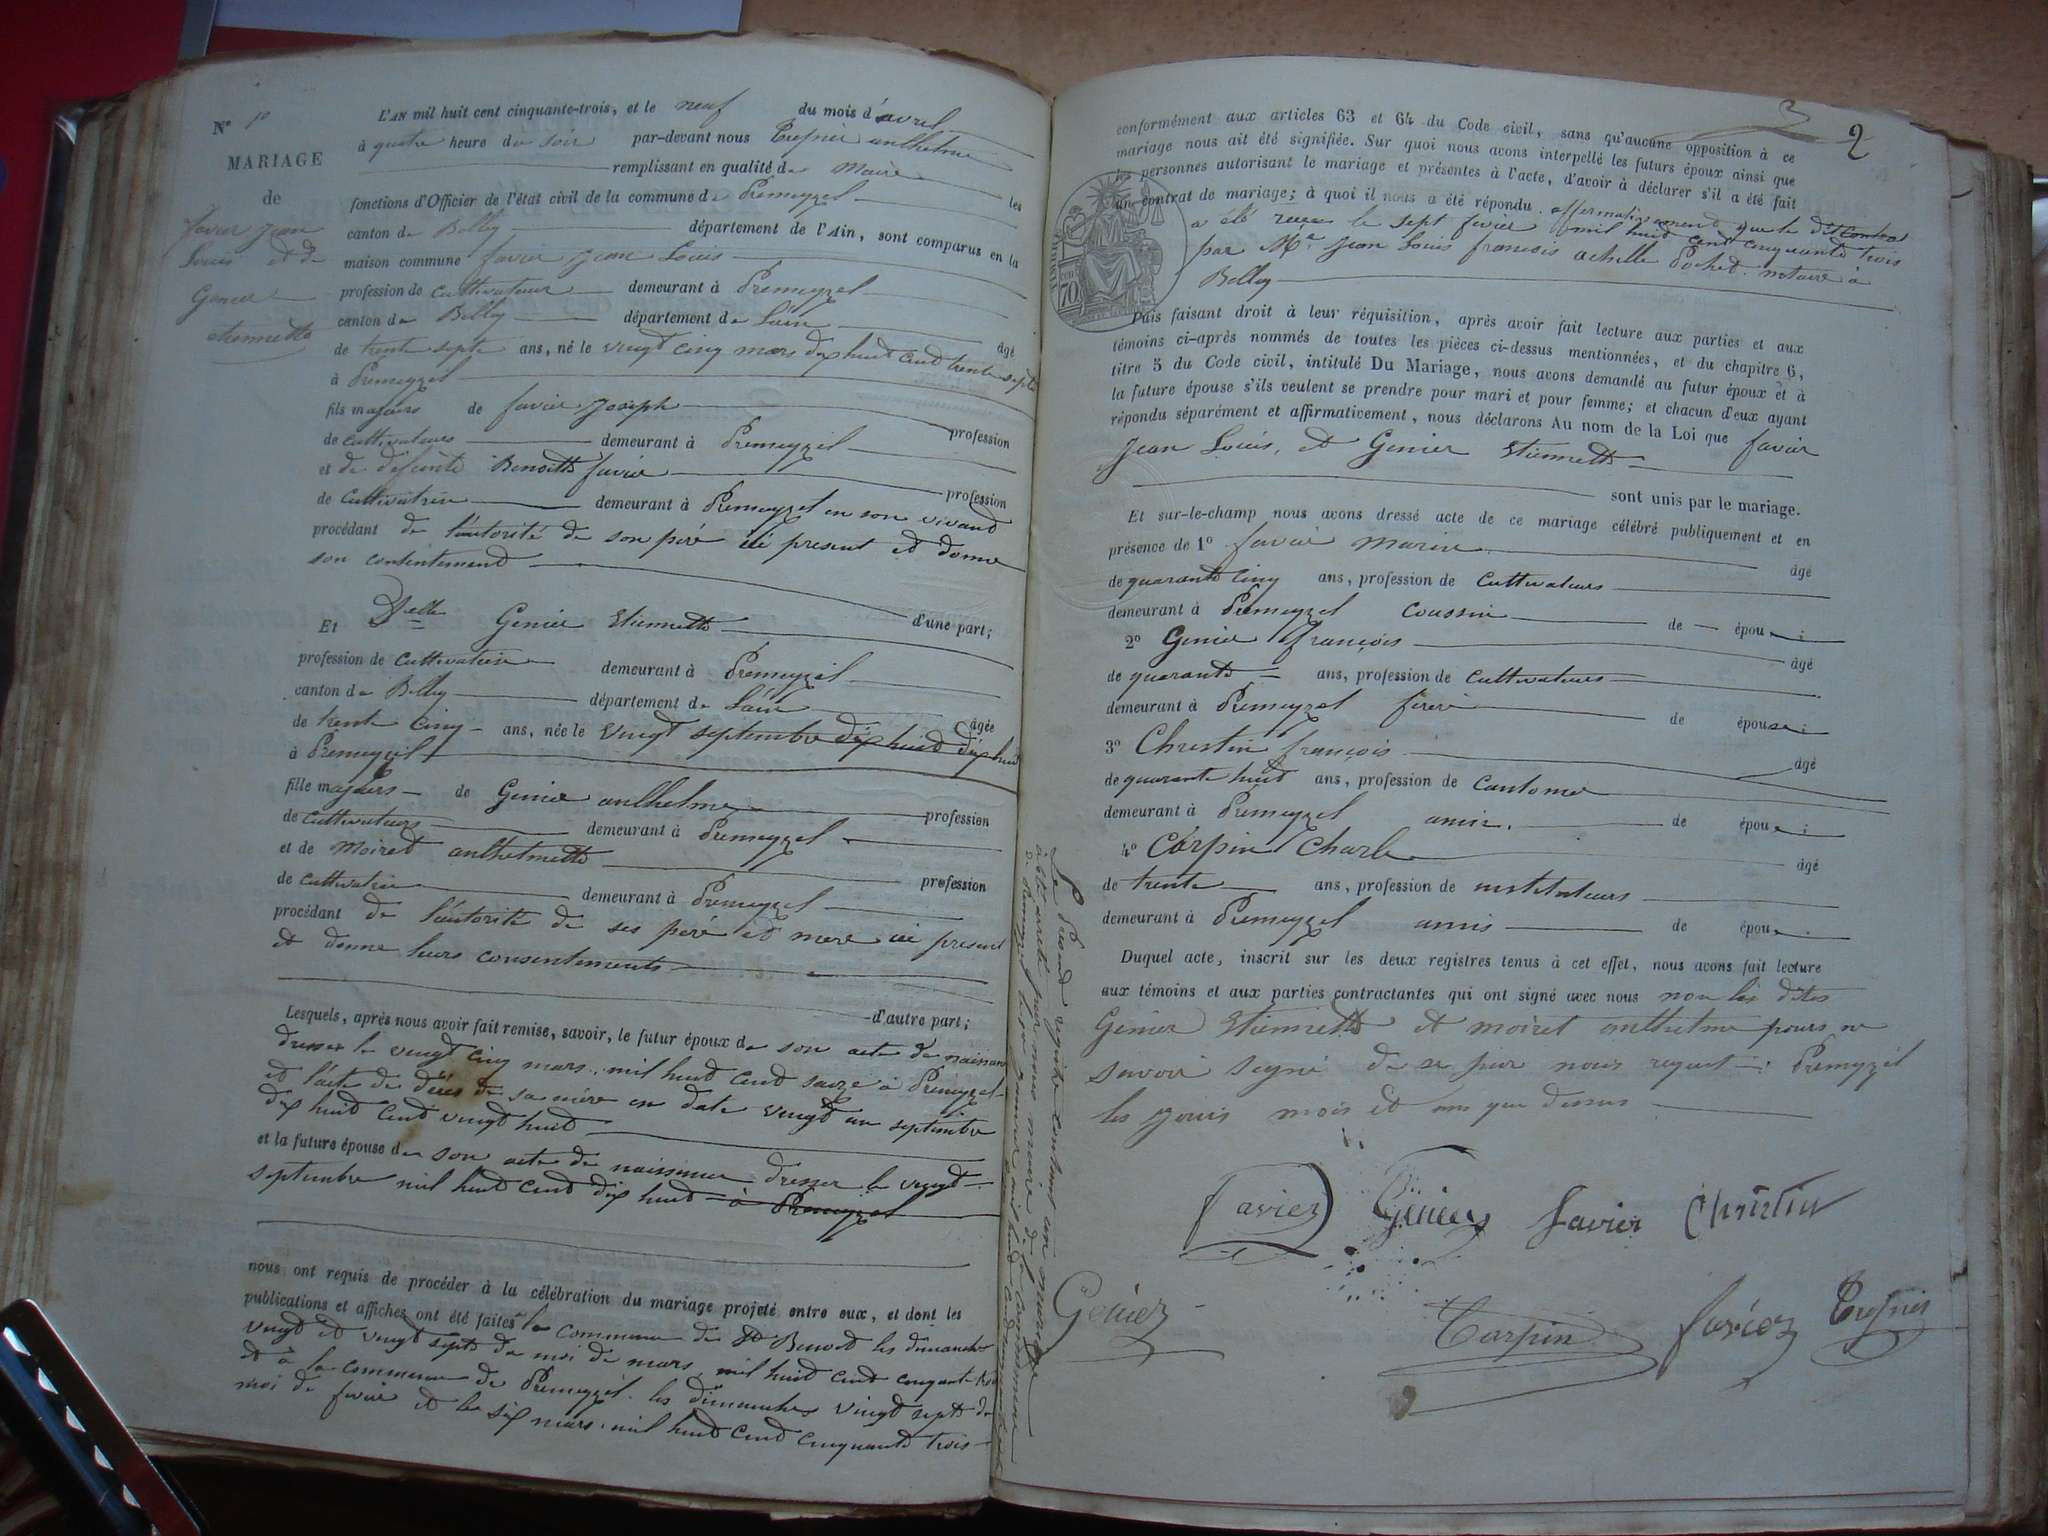 N° 1º
MARIAGE
de
favier jean
Louis et de
Genier
etiennette
L'AN mil huit cent cinquante-trois, et le neuf du mois d'avril
à quatre heure du soir par-devant nous anthelme
remplissant en qualité de Maire les
fonctions d'Officier de l'état civil de la commune de Premeyzel
canton de Belley département de l'Ain, sont comparus en la
maison commune favier jean Louis
profession de cultivateur demeurant à Premeyzel
canton de Belley département de L'ain âgé
de trente septe ans, né le vingt cinq mars dix huit cent trente septe
à Premeyzel
fils majeurs de favier joseph profession
de cultivateurs demeurant à Premeyzel
et de defunte Benoitte favier profession
de cultivatrice demeurant à Premeyzel en son vivand
procédant de l'autorité de son péré ici present et donne
son consentement
d'une part;
Et Delle Genier Etiennette
profession de cultivatrice demeurant à Premeyzel
canton de Belley département de L'ain âgée
de trente cinq ans, née le vingt septembre dix huit dix huit
à Premeyzel
fille majeurs de Genier anthelme profession
de cultivateurs demeurant à Premeyzel
et de Moiret anthelmette profession
de cultivatrice demeurant à Premeyzel
procédant de l'autorité de ses péré et mere ici present
et donne leurs consentements
d'autre part;
Lesquels, après nous avoir fait remise, savoir, le futur époux de son acte de naissance
dresser le vingt cinq mars mil huit cent saize à Premeyzel
et l'acte de déces de sa mère en date vingt un septembre
dix huit cent vingt huit
et la future épouse de son acte de naissance dresser le vingt
septembre mil huit cent dix huit à Premeyzel
nous ont requis de procéder à la célébration du mariage projeté entre eux, et dont les
publications et affiches ont été faites la commune de St Benoit les dimanches
vingt et vingt septe du moi de mars mil huit cent cinquante trois
et à la commune de Premeyzel les dimanches vingt septe du
moi de fevier et le six mars mil huit cent cinquante trois
Le Présend registre contenant un mariage
à été arreté par nous maire de la commune
de Premeyzel le
3 2
conformément aux articles 63 et 64 du Code civil, sans qu'aucune opposition à ce
mariage nous ait été signifiée. Sur quoi nous avons interpellé les futurs époux ainsi que
les personnes autorisant le mariage et présentes à l'acte, d'avoir à déclarer s'il a été fait
un contrat de mariage; à quoi il nous a été répondu affirmativement que le dit contrat
a été reçu le sept fevier mil huit cent cinquante trois
par Me jean Louis francois achille Pochet notaire à
Belley
Puis faisant droit à leur réquisition, après avoir fait lecture aux parties et aux
témoins ci-après nommés de toutes les pièces ci-dessus mentionnées, et du chapitre 6,
titre 5 du Code civil, intitulé Du Mariage, nous avons demandé au futur époux et à
la future épouse s'ils veulent se prendre pour mari et pour femme; et chacun d'eux ayant
répondu séparément et affirmativement, nous déclarons Au nom de la Loi que favier
Jean Louis, et Genier Etiennette
sont unis par le mariage.
Et sur-le-champ nous avons dressé acte de ce mariage célébré publiquement et en
présence de 1º favier marin âgé
de quarante cinq ans, profession de cultivateurs
demeurant à Premeyzel coussin de époux;
2º Genier françois âgé
de quarante ans, profession de cultivateurs
demeurant à Premeyzel frere de épouse;
3º Christin françois âgé
de quarante huit ans, profession de cantonier
demeurant à Premeyzel amis de époux;
4º Carpin Charle âgé
de trente ans, profession de instituteurs
demeurant à Premeyzel amis de époux.
Duquel acte, inscrit sur les deux registres tenus à cet effet, nous avons fait lecture
aux témoins et aux parties contractantes qui ont signé avec nous non les dites
Genier Etiennette et moiret anthelme pours ne
savoir signé de se par nous requet Premeyzel
les jours mois et ans que dessus
favier Genier favier Christin
Genier Carpin favier